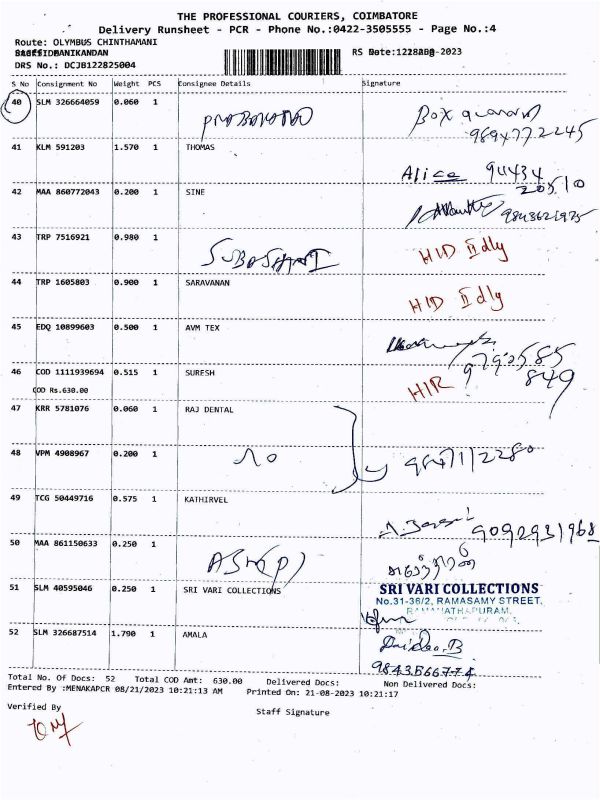 THE PROFESSIONAL COURIERS, COIMBATORE
Delivery Runsheet - PCR - Phone No.:0422-3505555 - Page No.:4
Route: OLYMBUS CHINTHAMANI
MANIKANDAN RS Date: 2023
DRS No.: DCJB122825004
S No Consignment No Weight PCS Consignee Details Signature
40 SLM 326664059 0.060 1
9894772245
41 KLM 591203 1.570 1 THOMAS
Alice 94434
20510
42 MAA 860772043 0.200 1 SINE
9843621925
43 TRP 7516921 0.980 1
HID II dly
44 TRP 1605803 0.900 1 SARAVANAN
HID II dly
45 EDQ 10899603 0.500 1 AVM TEX
9792585
849
46 COD 1111939694 0.515 1 SURESH
COD Rs.630.00
HIR
47 KRR 5781076 0.060 1 RAJ DENTAL
48 VPM 4908967 0.200 1
49 TCG 50449716 0.575 1 KATHIRVEL
9092931968
50 MAA 861150633 0.250 1
51 SLM 40595046 0.250 1 SRI VARI COLLECTIONS
SRI VARI COLLECTIONS
No.31-36/2, RAMASAMY STREET,
52 SLM 326687514 1.790 1 AMALA
Total No. Of Docs: 52 Total COD Amt: 630.00 Delivered Docs: Non Delivered Docs:
Entered By :MENAKAPCR 08/21/2023 10:21:13 AM Printed On: 21-08-2023 10:21:17
Verified By
Staff Signature